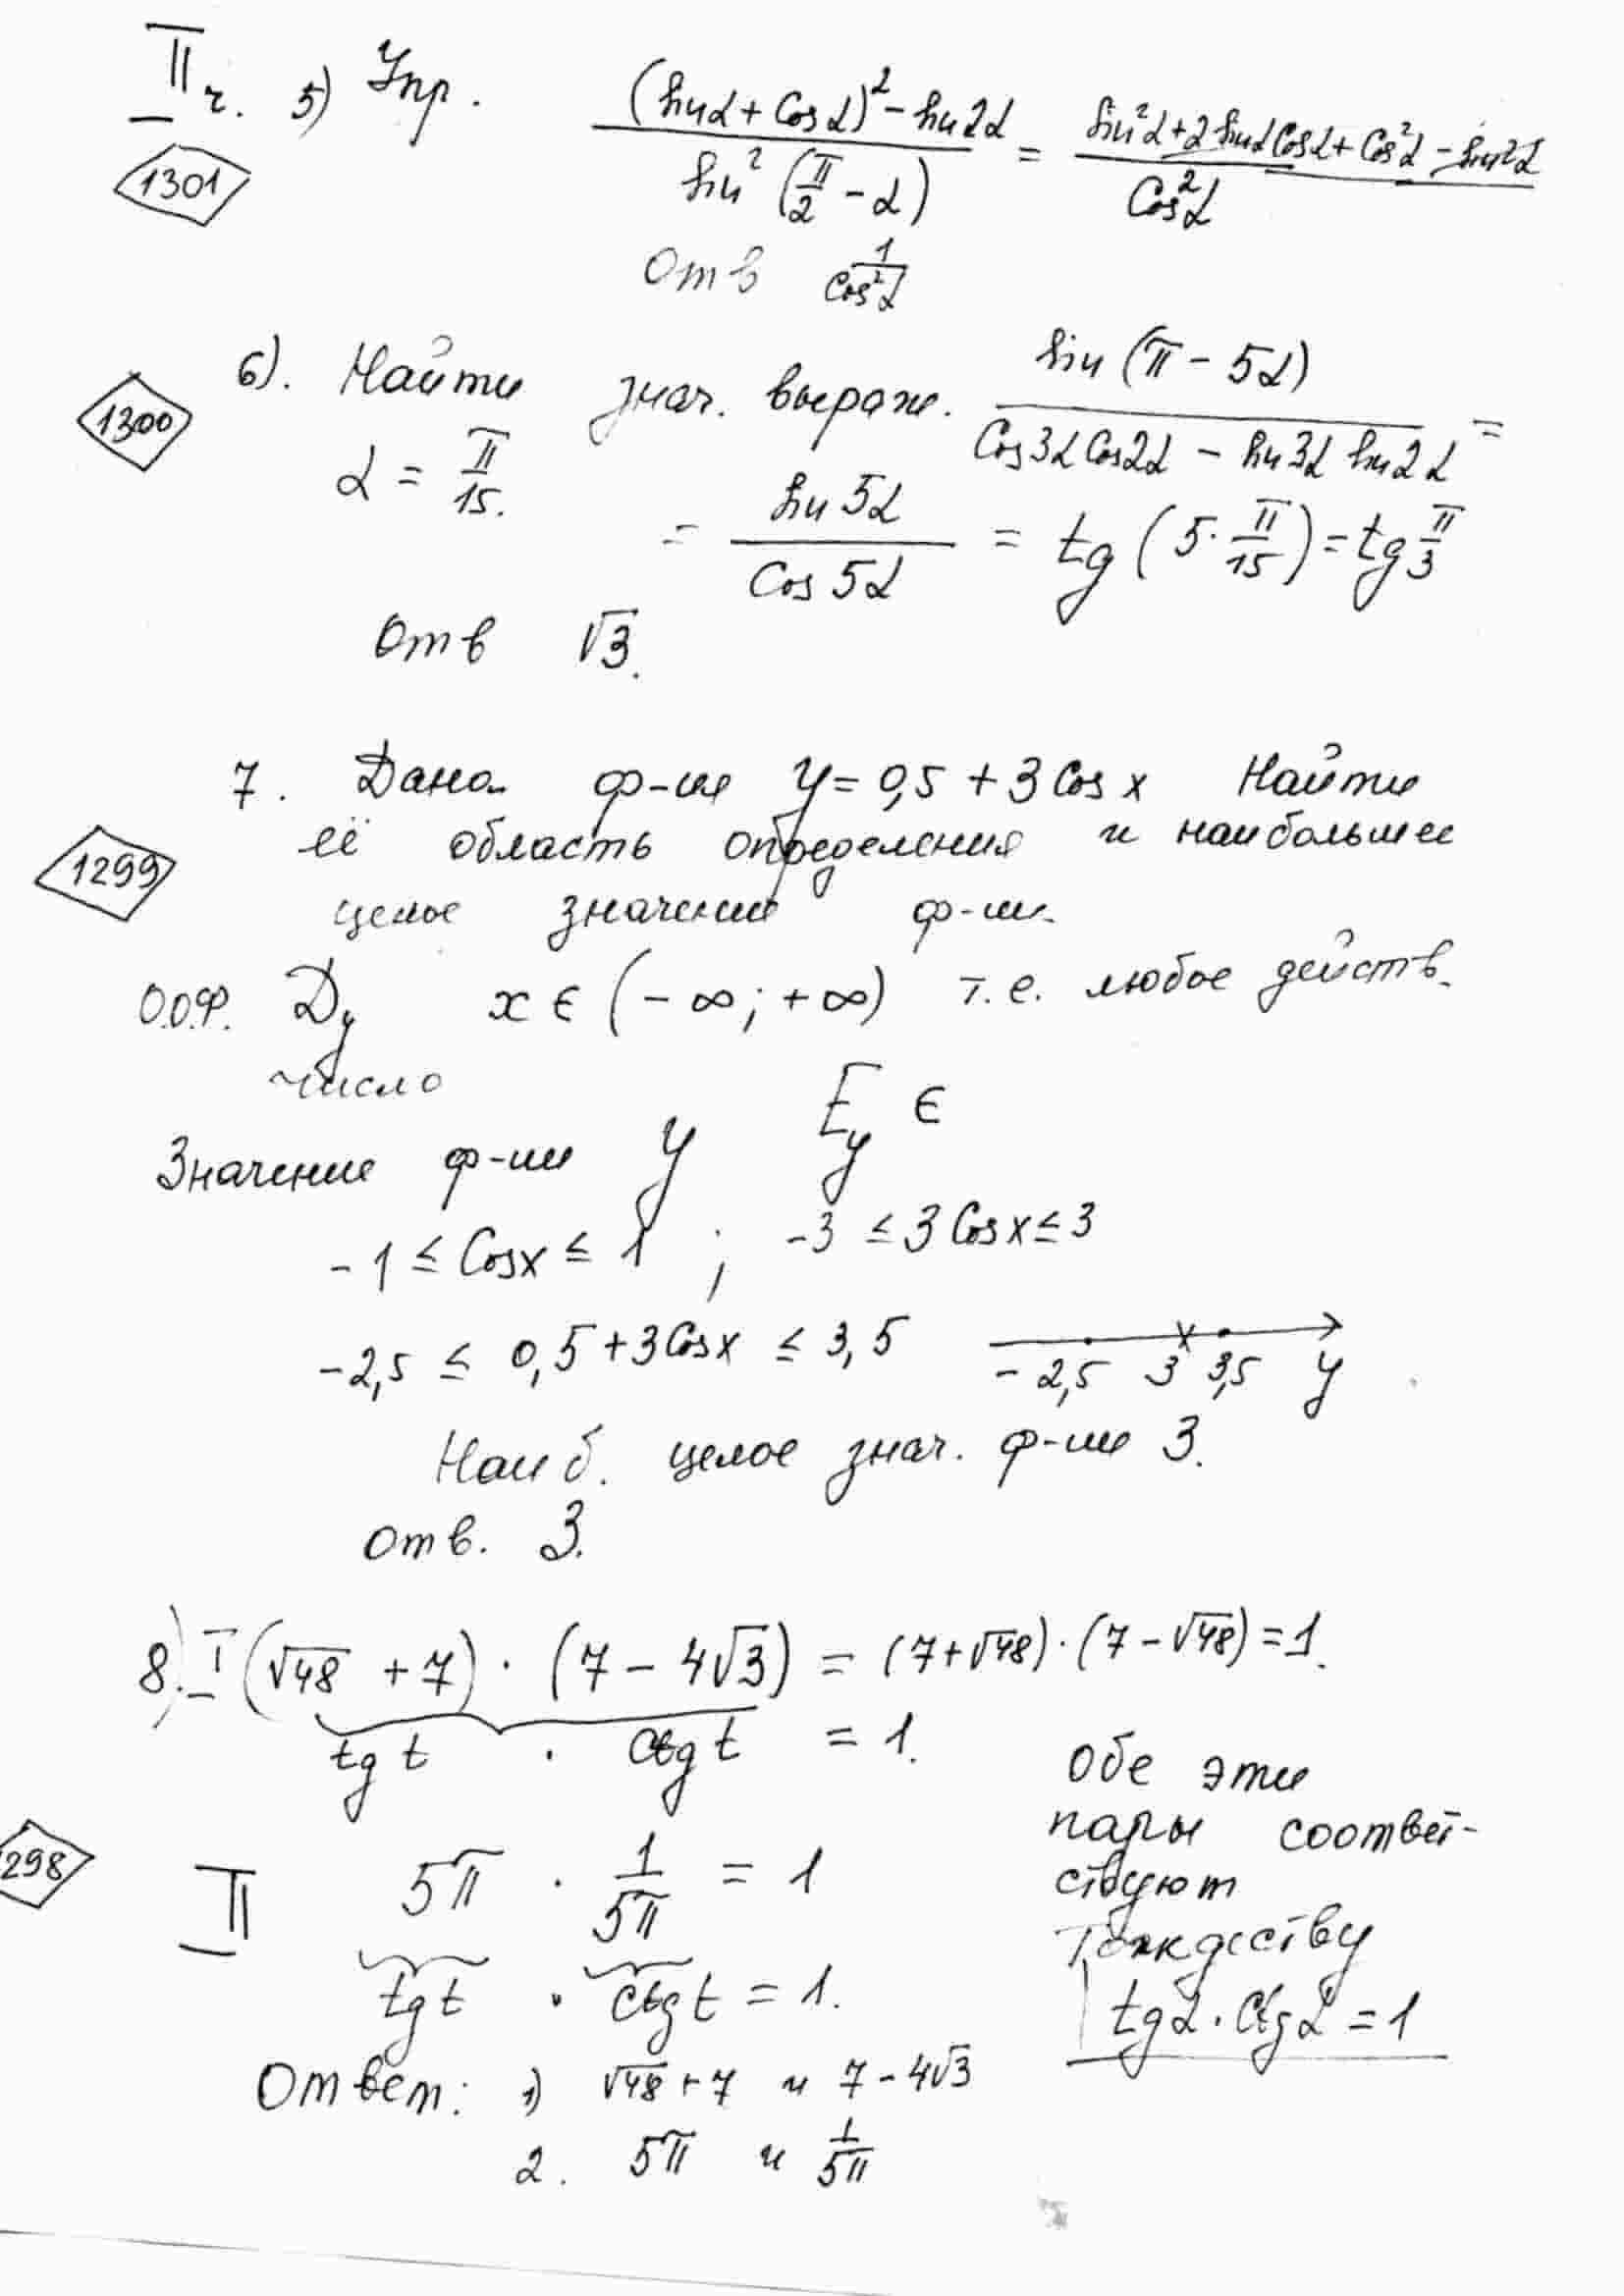 II ч. 5) Упр. (sin α + Cos α)² − sin 2α / sin² (π/2 − α) = sin²α + 2 sin α Cos α + Cos²α − sin 2α / Cos²α
1301
Отв 1/Cos²α
6). Найти знач. выраж. sin (π − 5α) / Cos 3α Cos 2α − sin 3α sin 2α =
1300
α = π/15.
= sin 5α / Cos 5α = tg (5 · π/15) = tg π/3
Отв √3.
7. Дана ф-ия y = 0,5 + 3 Cos x Найти
её область определения и наибольшее
1299
целое значение ф-ии.
О.О.Ф. Dy x ∈ (− ∞; + ∞) т.е. любое действ.
число
Значение ф-ии y Ey ∈
−1 ≤ Cos x ≤ 1 ; −3 ≤ 3 Cos x ≤ 3
−2,5 ≤ 0,5 + 3 Cos x ≤ 3,5
−2,5 3 3,5 y
Наиб. целое знач. ф-ии 3.
Отв. 3.
8.) I (√48 + 7) · (7 − 4√3) = (7 + √48) · (7 − √48) = 1.
tg t · ctg t = 1.
298
II 5π · 1/5π = 1
tg t · ctg t = 1.
Обе эти
пары соответ-
ствуют
тождеству
tg α · Ctg α = 1
Ответ: 1) √48 + 7 и 7 − 4√3
2. 5π и 1/5π